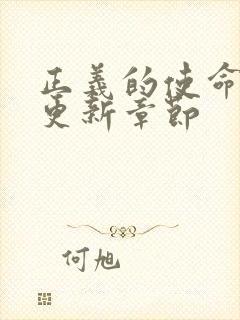 正義的使命
更新章節
何旭